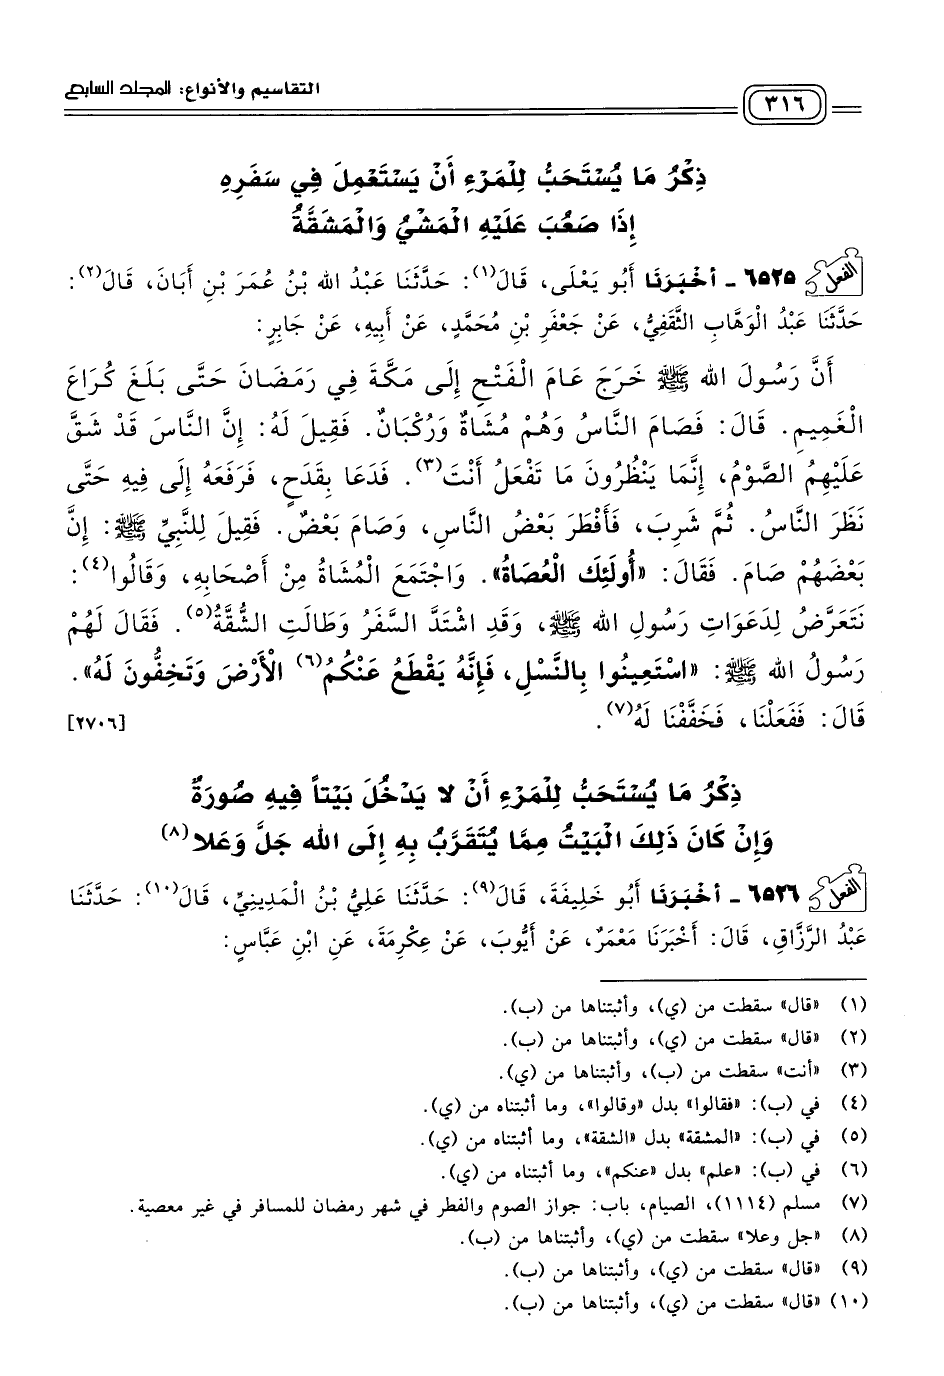 ٣١٦
التقاسيم والأنواع: المجلد السابع
ذِكْرُ مَا يُسْتَحَبُّ لِلْمَرْءِ أَنْ يَسْتَعْمِلَ فِي سَفَرِهِ
إِذَا صَعُبَ عَلَيْهِ الْمَشْيُ وَالْمَشَقَّةُ
الفعل ٦٥٢٥ - أَخْبَرَنَا أَبُو يَعْلَى، قَالَ(١): حَدَّثَنَا عَبْدُ الله بْنُ عُمَرَ بْنِ أَبَانَ، قَالَ(٢):
حَدَّثَنَا عَبْدُ الْوَهَّابِ الثَّقَفِيُّ، عَنْ جَعْفَرِ بْنِ مُحَمَّدٍ، عَنْ أَبِيهِ، عَنْ جَابِرٍ:
أَنَّ رَسُولَ الله ﷺ خَرَجَ عَامَ الْفَتْحِ إِلَى مَكَّةَ فِي رَمَضَانَ حَتَّى بَلَغَ كُرَاعَ
الْغَمِيمِ. قَالَ: فَصَامَ النَّاسُ وَهُمْ مُشَاةٌ وَرُكْبَانٌ. فَقِيلَ لَهُ: إِنَّ النَّاسَ قَدْ شَقَّ
عَلَيْهِمُ الصَّوْمُ، إِنَّمَا يَنْظُرُونَ مَا تَفْعَلُ أَنْتَ(٣). فَدَعَا بِقَدَحٍ، فَرَفَعَهُ إِلَى فِيهِ حَتَّى
نَظَرَ النَّاسُ. ثُمَّ شَرِبَ، فَأَفْطَرَ بَعْضُ النَّاسِ، وَصَامَ بَعْضٌ. فَقِيلَ لِلنَّبِيِّ ﷺ: إِنَّ
بَعْضَهُمْ صَامَ. فَقَالَ: «أُولَئِكَ الْعُصَاةُ». وَاجْتَمَعَ الْمُشَاةُ مِنْ أَصْحَابِهِ، وَقَالُوا(٤):
نَتَعَرَّضُ لِدَعَوَاتِ رَسُولِ الله ﷺ، وَقَدِ اشْتَدَّ السَّفَرُ وَطَالَتِ الشُّقَّةُ(٥). فَقَالَ لَهُمْ
رَسُولُ الله ﷺ: «اسْتَعِينُوا بِالنَّسْلِ، فَإِنَّهُ يَقْطَعُ عَنْكُمُ(٦) الْأَرْضَ وَتَخِفُّونَ لَهُ».
قَالَ: فَفَعَلْنَا، فَخَفَّفْنَا لَهُ(٧). [٢٧٠٦]
ذِكْرُ مَا يُسْتَحَبُّ لِلْمَرْءِ أَنْ لا يَدْخُلَ بَيْتاً فِيهِ صُورَةٌ
وَإِنْ كَانَ ذَلِكَ الْبَيْتُ مِمَّا يُتَقَرَّبُ بِهِ إِلَى الله جَلَّ وَعَلا(٨)
الفعل ٦٥٢٦ - أَخْبَرَنَا أَبُو خَلِيفَةَ، قَالَ(٩): حَدَّثَنَا عَلِيُّ بْنُ الْمَدِينِيِّ، قَالَ(١٠): حَدَّثَنَا
عَبْدُ الرَّزَّاقِ، قَالَ: أَخْبَرَنَا مَعْمَرٌ، عَنْ أَيُّوبَ، عَنْ عِكْرِمَةَ، عَنِ ابْنِ عَبَّاسٍ:
(١) «قال» سقطت من (ي)، وأثبتناها من (ب).
(٢) «قال» سقطت من (ي)، وأثبتناها من (ب).
(٣) «أنت» سقطت من (ب)، وأثبتناها من (ي).
(٤) في (ب): «فقالوا» بدل «وقالوا»، وما أثبتناه من (ي).
(٥) في (ب): «المشقة» بدل «الشقة»، وما أثبتناه من (ي).
(٦) في (ب): «علم» بدل «عنكم»، وما أثبتناه من (ي).
(٧) مسلم (١١١٤)، الصيام، باب: جواز الصوم والفطر في شهر رمضان للمسافر في غير معصية.
(٨) «جل وعلا» سقطت من (ي)، وأثبتناها من (ب).
(٩) «قال» سقطت من (ي)، وأثبتناها من (ب).
(١٠) «قال» سقطت من (ي)، وأثبتناها من (ب).